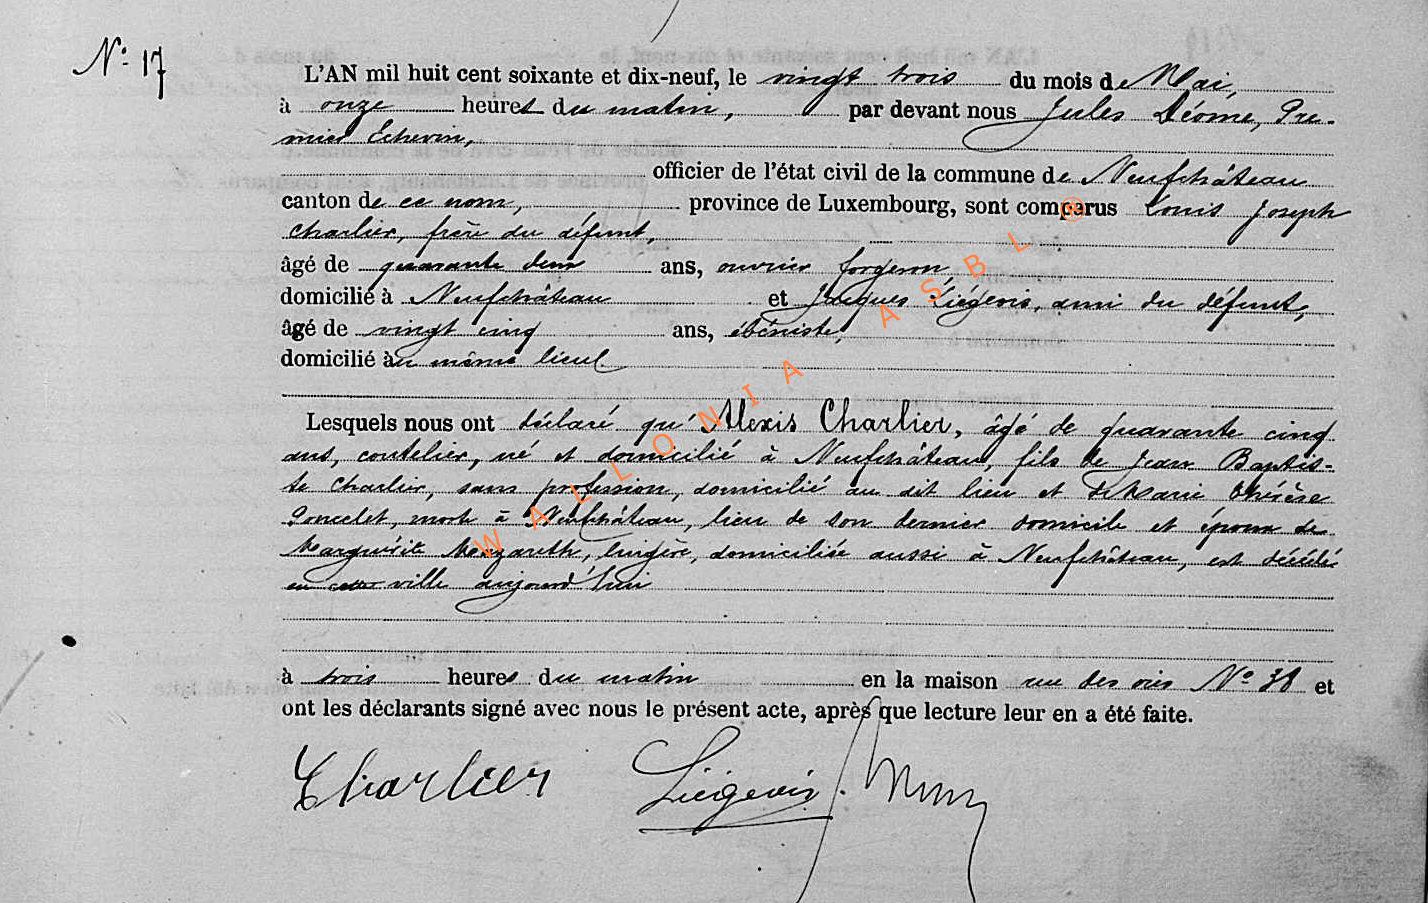 N° 17
L'AN mil huit cent soixante et dix-neuf, le vingt trois du mois de Mai,
à onze heures du matin, par devant nous Jules Déome, Pre-
mier Echevin,
officier de l'état civil de la commune de Neufchâteau
canton de ce nom, province de Luxembourg, sont comparus Louis Joseph
Charlier, frère du défunt,
âgé de quarante deux ans, ouvrier forgeron,
domicilié à Neufchâteau et Jacques Liégeois, ami du défunt,
âgé de vingt cinq ans, ébéniste,
domicilié au même lieu
Lesquels nous ont déclaré qu'Alexis Charlier, âgé de quarante cinq
ans, coutelier, né et domicilié à Neufchâteau, fils de Jean Baptis-
te Charlier, sans profession, domicilié au dit lieu et de Marie Thérèse
Poncelet, morte à Neufchâteau, lieu de son dernier domicile et époux de
Marguérite, lingère, domiciliée aussi à Neufchâteau, est décédé
en cette ville aujourd'hui
à trois heures du matin en la maison rue des N° 38 et
ont les déclarants signé avec nous le présent acte, après que lecture leur en a été faite.
Charlier Liégeois
WALLONIA ASBL ®